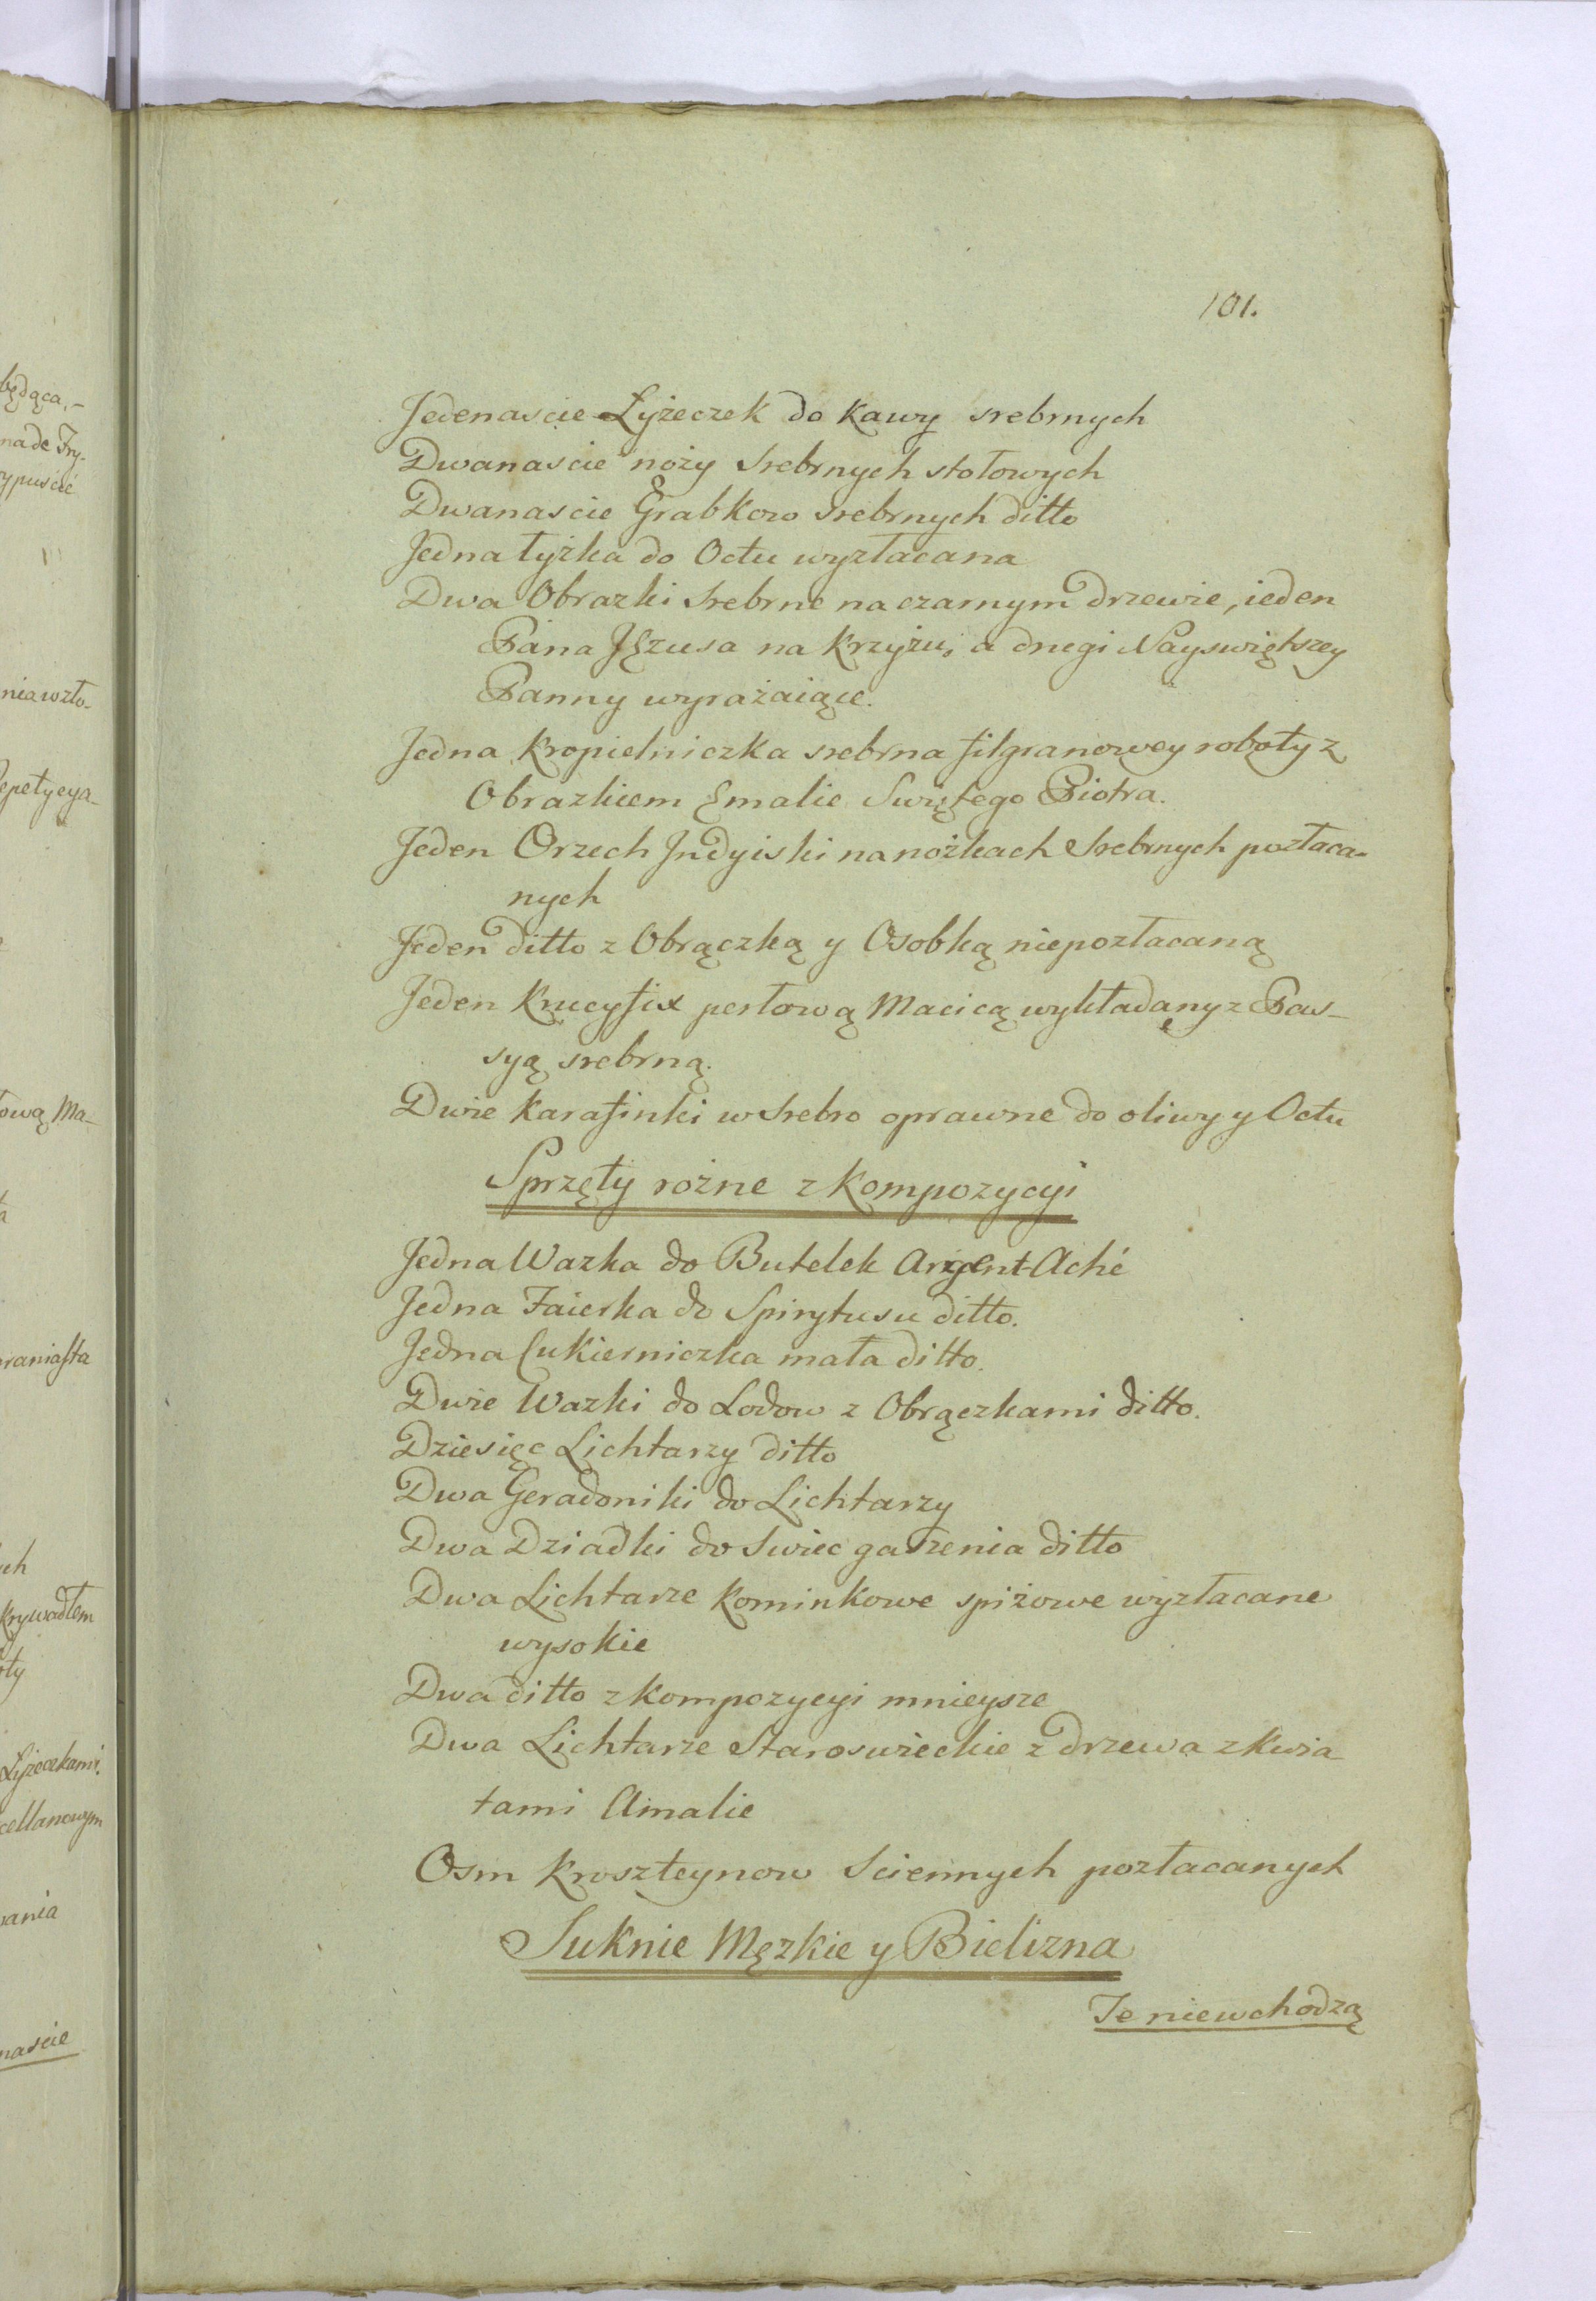 będąca.-
nade Fry-
rypuscić
nia wzło-
epetycya-
ową Ma-
raniasta
ch
krywadłem
ty
Łyżeczkami.
cellanowym
ania
nascie
101.
Jedenascie Łyżeczek do kawy srebrnych
Dwanascie noży srebrnych stołowych
Dwanascie Grabkow srebrnych ditto
Jedna łyżka do Octu wyzłacana
Dwa Obrazki srebrne na czarnym drzewie, ieden
Pana JEzusa na krzyżu, a drugi Nayswiętszey
Panny wyrażaiące.
Jedna kropielniczka srebrna filgranowey roboty z
Obrazkiem Emalie Swiętego Piotra.
Jeden Orzech Jndyiski na nożkach srebrnych pozłaca-
nych
Jeden ditto z Obrączką y Osobką niepozłacaną
Jeden krucyfix perłową Macicą wykładany z Pas-
syą srebrną.
Dwie karafinki w srebro oprawne do oliwy y Octu
Sprzęty rożne z kompozycyi
Jedna Wazka do Butelek Argent-Aché
Jedna Faierka do Spirytusu ditto.
Jedna Cukierniczka mała ditto.
Dwie Wazki do Lodow z Obrączkami ditto.
Dziesięc Lichtarzy ditto
Dwa Geradoniki do Lichtarzy
Dwa Dziadki do swiec gaszenia ditto
Dwa Lichtarze kominkowe spiżowe wyzłacane
wysokie
Dwa ditto z kompozycyi mnieysze
Dwa Lichtarze Staroswieckie z drzewa z kwia
tami Amalie
Osm kroszteynow sciennych pozłacanych
Suknie Męzkie y Bielizna
Te niewchodzą